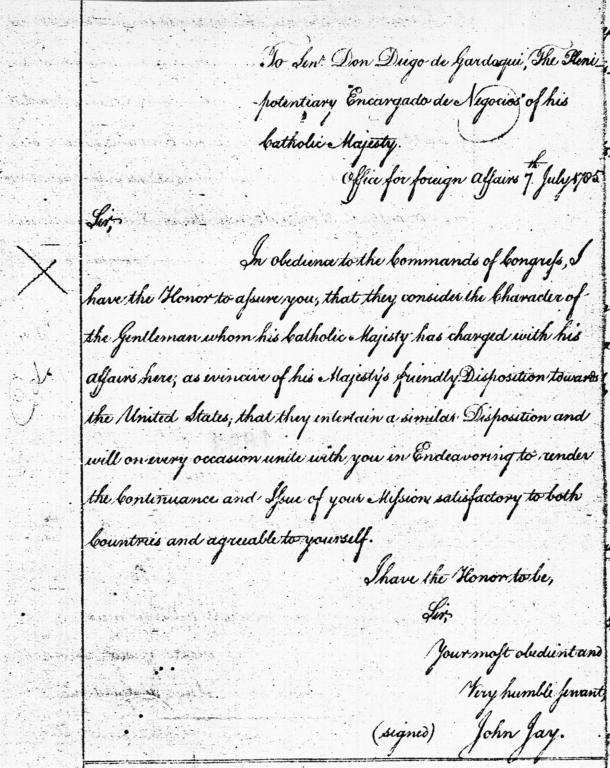 To Senr. Don Diego de Gardoqui, The Pleni-
potentiary "Encargado de Negocios" of his
Catholic Majesty.
Office for foreign Affairs 7th. July 1785
Sir,
In obedience to the Commands of Congress, I
have the Honor to assure you, that they consider the Character of
the Gentleman whom his Catholic Majesty has charged with his
affairs here, as evincive of his Majesty's friendly Disposition towards
the United States, that they entertain a similar Disposition and
will on every occasion unite with you in Endeavoring to render
the Continuance and Issue of your Mission satisfactory to both
Countries and agreable to yourself.
I have the Honor to be,
Sir,
Your most obedient and
Very humble servant,
(signed) John Jay.